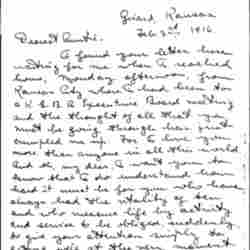 Girard, Kansas
Feb 2nd, 1916
Dearest Auntie:
I found your letter here
waiting for me when I reached
home, Monday afternoon, from
Kansas City where I had been to
a K. S. B. A Executive Board meeting
and the thought of all that you
must be going through has just
crumpled me up. For I love you
more than anyone in all this world.
And, my dear, I want you to
know that I do understand how
hard it must be for you who have
always had the vitality of ten
and who measure life by activity
and service to be obliged, suddenly,
to give your attention simply to